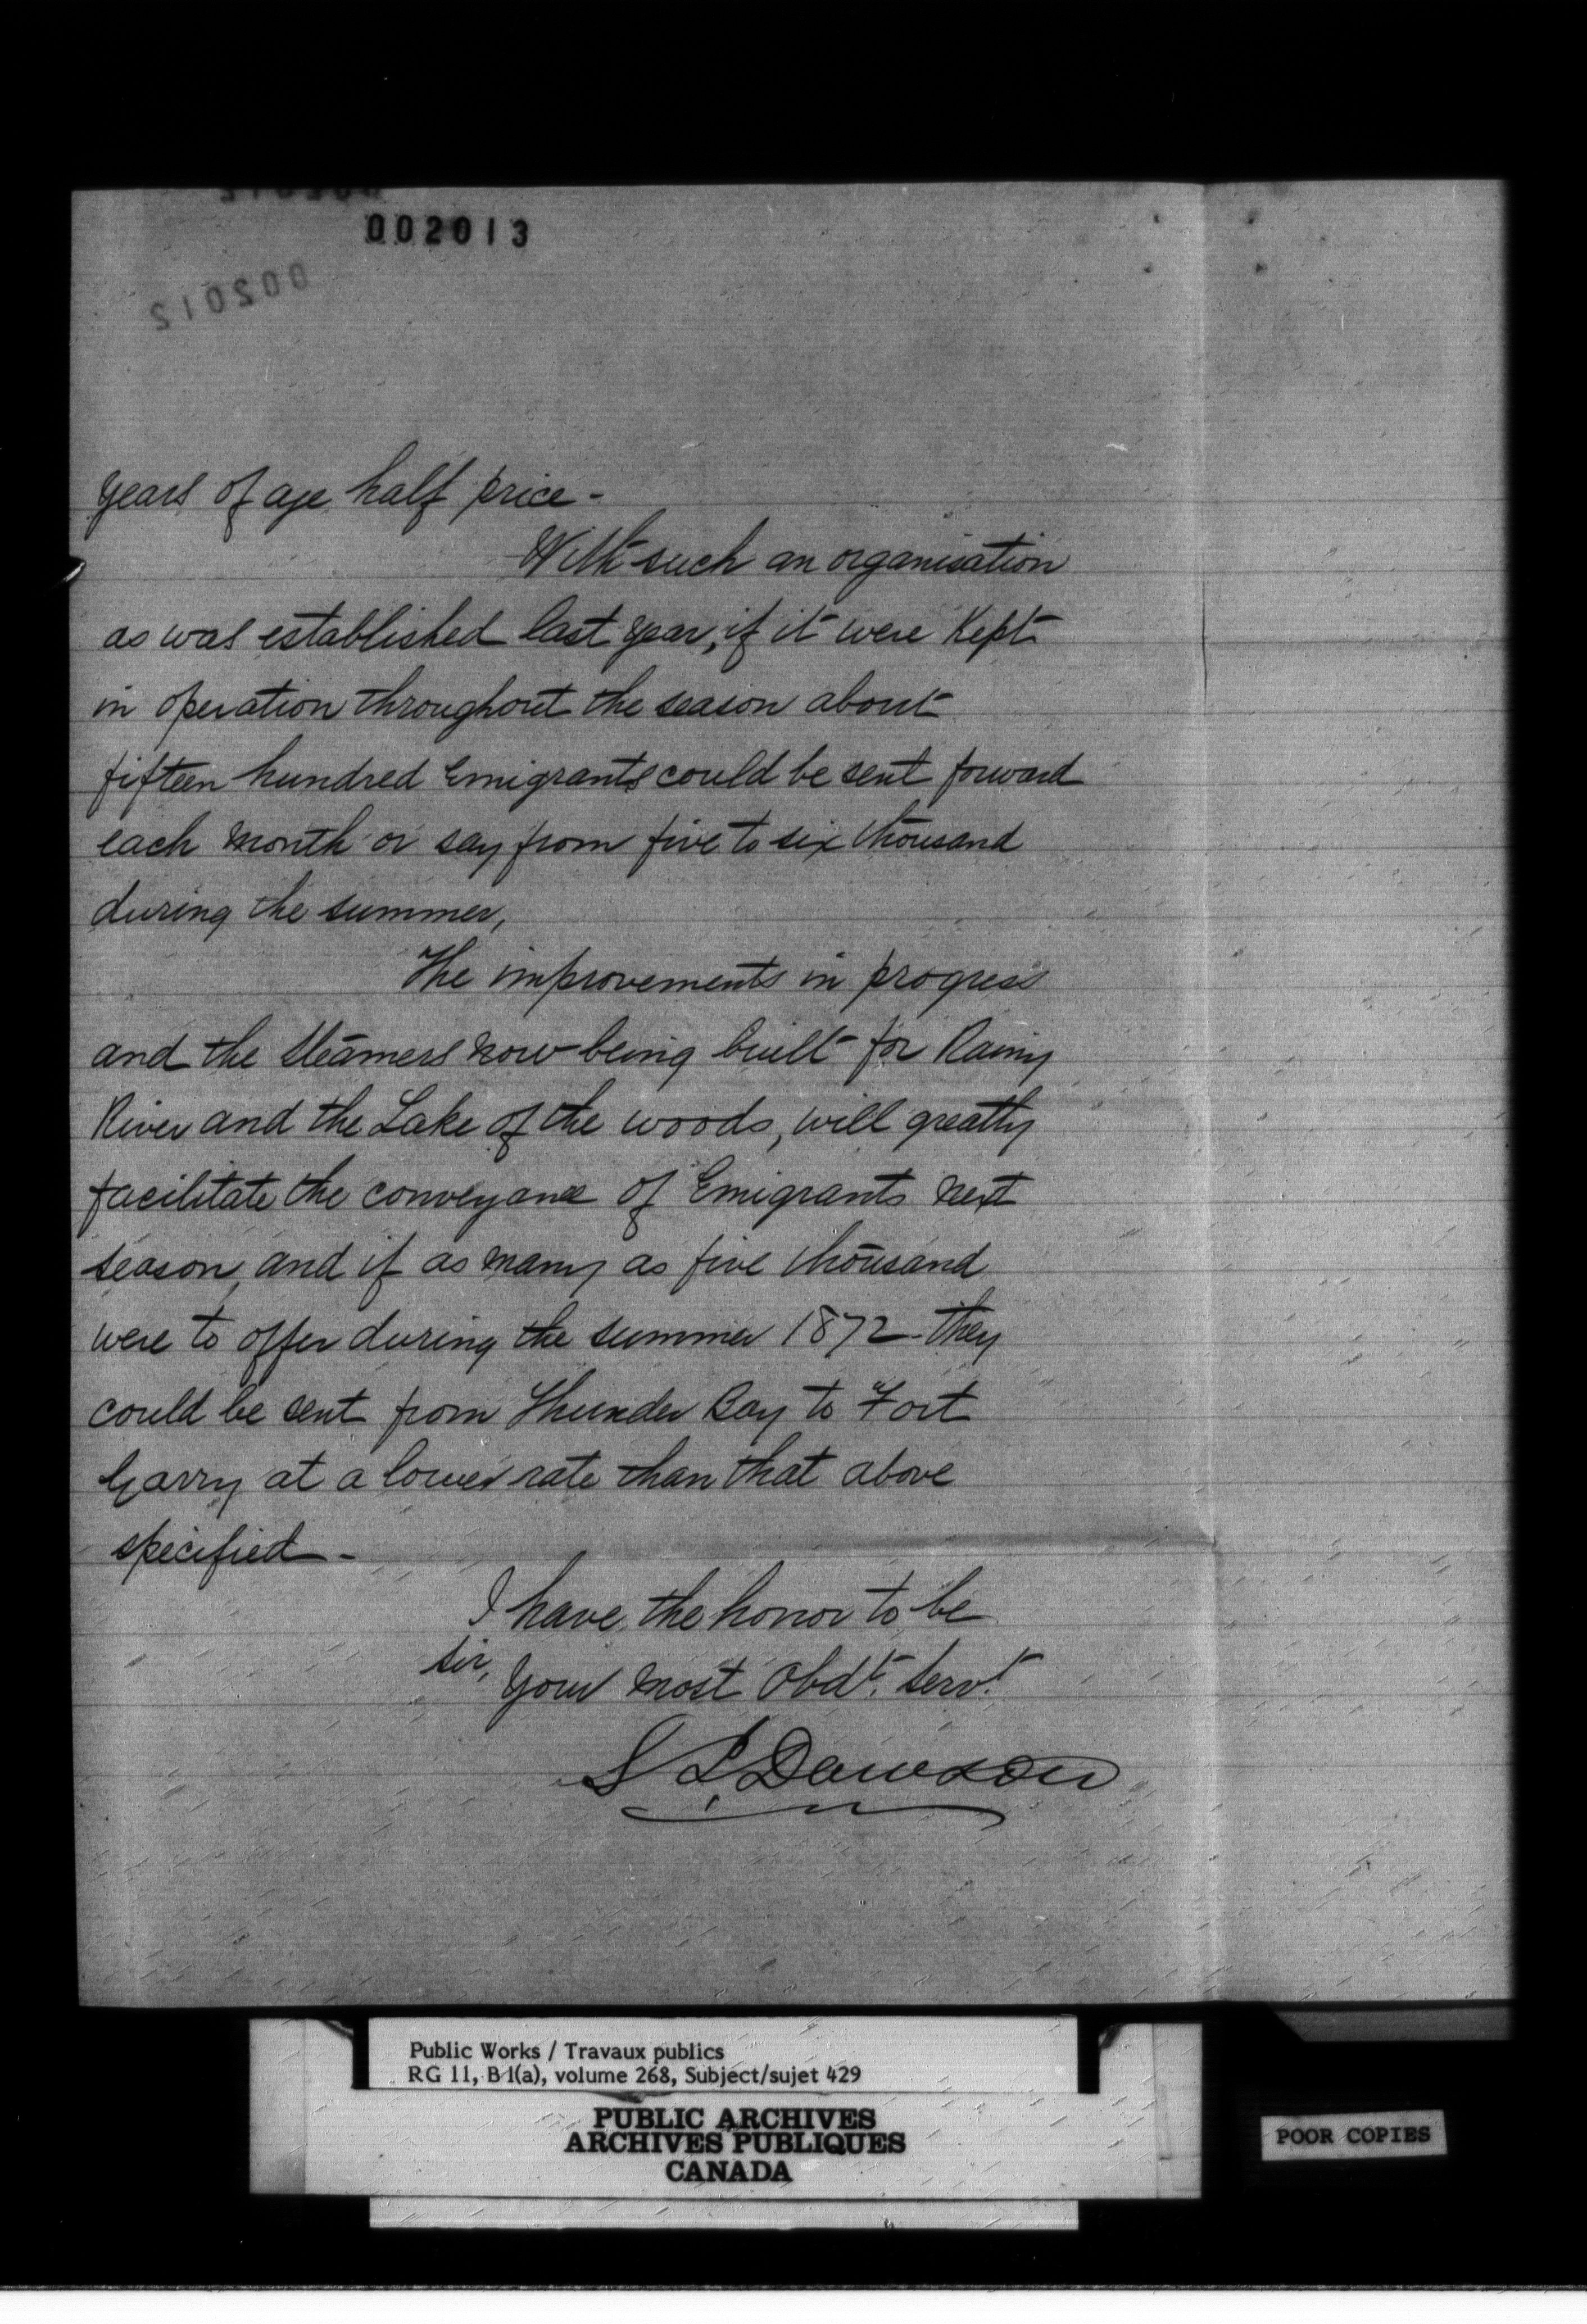 002013
002012
years of age half price -
With such an organisation
as was established last year, if it were Kept
in operation throughout the season about
fifteen hundred Emigrants could be sent forward
each month or say from five to six thousand
during the summer,
The improvements in progress
and the steamers now being built for Rainy
River and the Lake of the woods, will greatly
facilitate the conveyance of Emigrants next
season, and if as many as five thousand
were to offer during the summer 1872 they
could be sent from Thunder Bay to Fort
Garry at a lower rate than that above
specified -
I have the honor to be
Sir,
Your most Obdt. Servt.
S J Dawson
Public Works / Travaux publics
RG 11, B 1(a), volume 268, Subject/sujet 429
PUBLIC ARCHIVES
ARCHIVES PUBLIQUES
CANADA
POOR COPIES